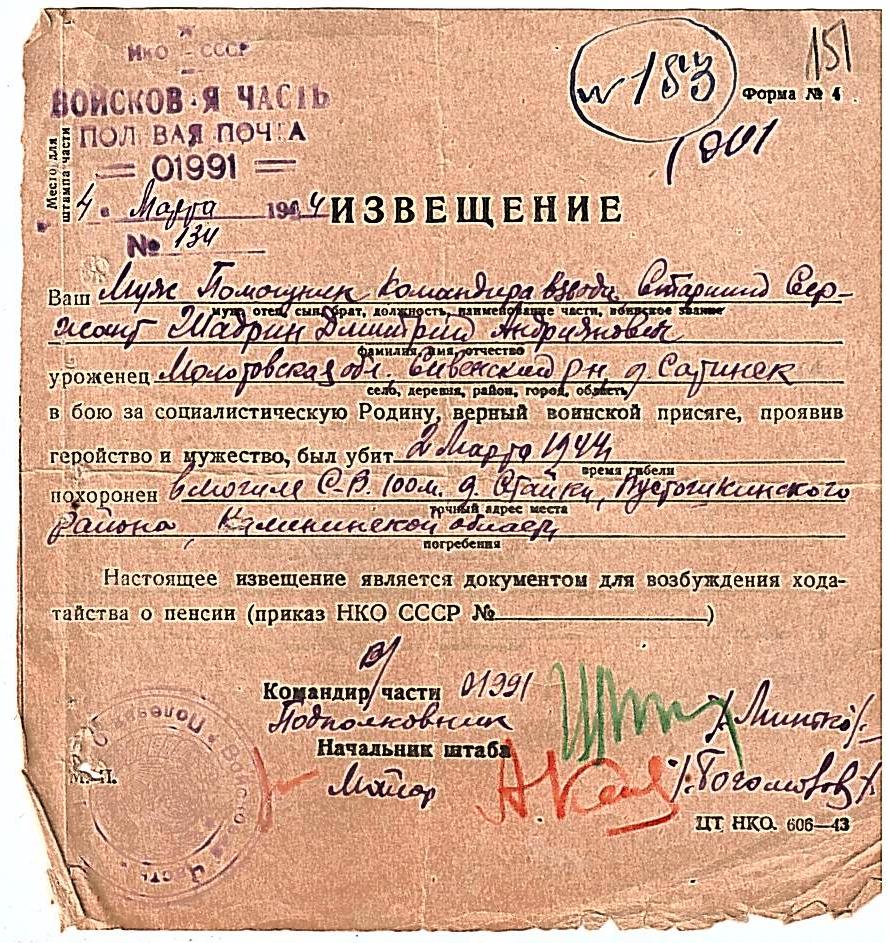 НКО - СССР
ВОЙСКОВ Я ЧАСТЬ
ПОЛ ВАЯ ПОЧТА
01991
Место для
штампа части
4 Марта 1944
№ 134
№ 183
151
Форма № 4
ИЗВЕЩЕНИЕ
Ваш Муж Помощник Командира взвода, Старший Сер-
муж, отец, сын, брат, должность, наименование части, воинское звание
жант Шадрин Дмитрий Андриянович
фамилия, имя, отчество
уроженец Молотовская обл. Сивенский р-н д. Сатинек
село, деревня, район, город, область
в бою за социалистическую Родину, верный воинской присяге, проявив
геройство и мужество, был убит 2 Марта 1944
время гибели
похоронен в могиле С.В. 100 м. д. Стайки, Пустошкинского
точный адрес места
района, Калининской области
погребения
Настоящее извещение является документом для возбуждения хода-
тайства о пенсии (приказ НКО СССР № )
Командир части 01991
Подполковник
Начальник штаба
Майор
М. П.
Войсковая Часть Полевая
ЦТ НКО. 606—43